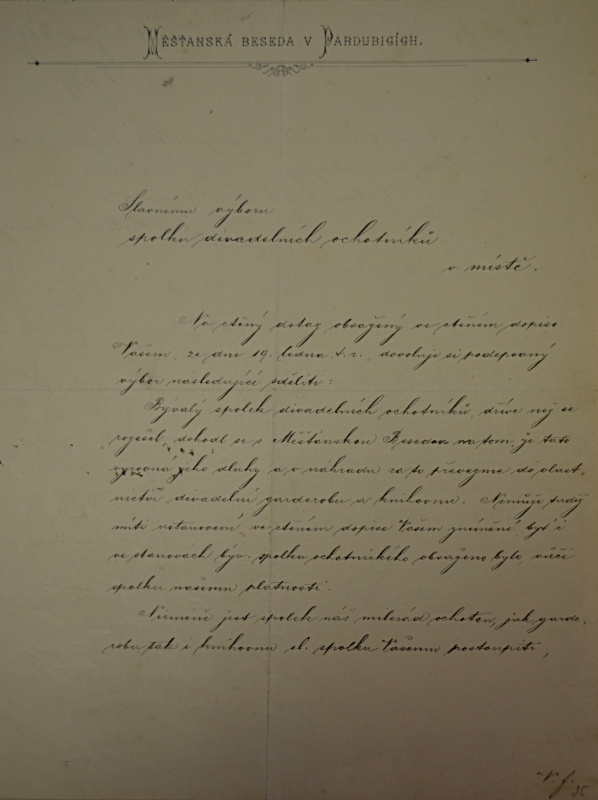 MĚŠŤANSKÁ BESEDA V PARDUBICÍCH.
Slavnému výboru
spolku divadelních ochotníků
v místě.
Na ctěný dotaz obsažený ve ctěném dopise
Vašem, ze dne 19. ledna t. r., dovoluje si podepsaný
výbor následující sděliti:
Bývalý spolek divadelních ochotníků, dříve nej se
rozešel, dohodl se s Měšťanskou Besedou na tom, že tato
vyrovná jeho dluhy a v náhradu za to převezme do vlast-
nictví divadelní garderobu a knihovnu. Nemůže tudíž
míti ustanovení ve ctěném dopise Vašem zmíněné byť i
ve stanovách býv. spolku ochotnického obsaženo bylo vůči
spolku našemu platnosti.
Nicméně jest spolek náš milerád ochoten, jak garde-
robu tak i knihovnu sl. spolku Vašemu postoupiti,